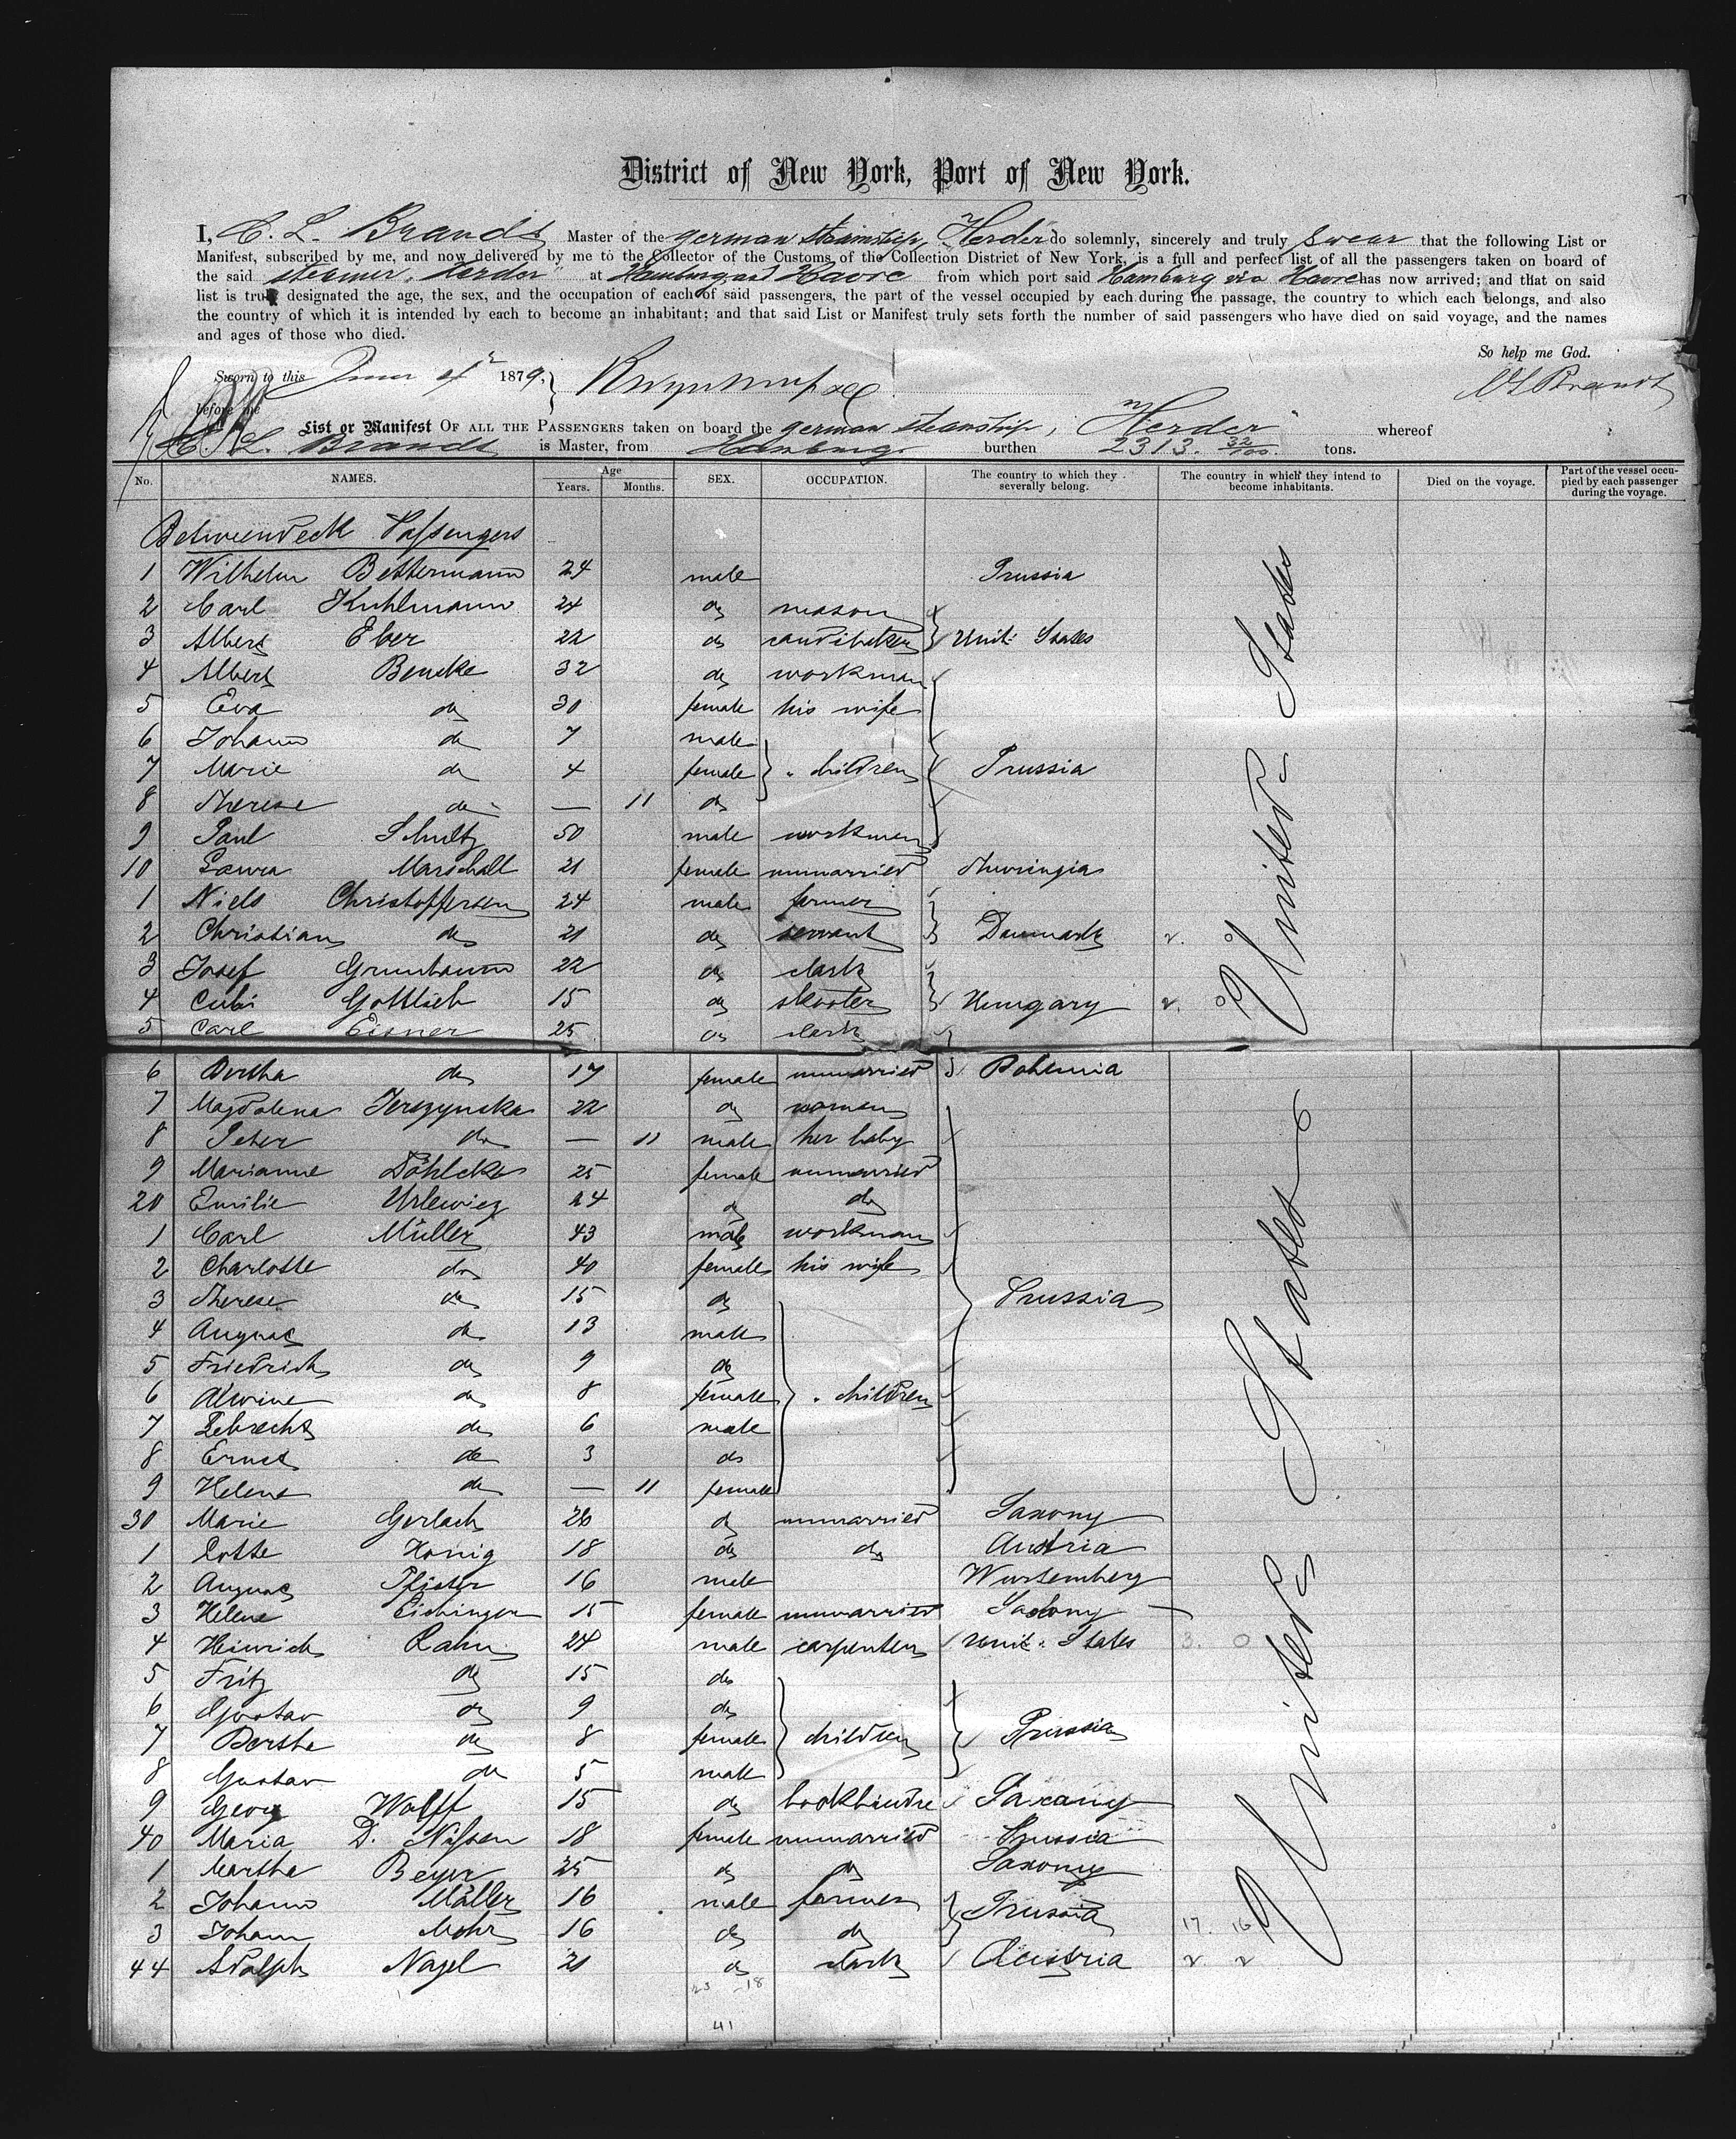 District of New York, Port of New York.
I, C. L. Brandt Master of the german steamship, "Herder" do solemnly, sincerely and truly swear that the following List or
Manifest, subscribed by me, and now delivered by me to the Collector of the Customs of the Collection District of New York, is a full and perfect list of all the passengers taken on board of
the said steamer "Herder" at Hamburg and Havre from which port said Hamburg via Havre has now arrived; and that on said
list is truly designated the age, the sex, and the occupation of each of said passengers, the part of the vessel occupied by each during the passage, the country to which each belongs, and also
the country of which it is intended by each to become an inhabitant; and that said List or Manifest truly sets forth the number of said passengers who have died on said voyage, and the names
and ages of those who died.
So help me God.
Sworn to this 1879.
before me
C L Brandt
List or Manifest OF ALL THE PASSENGERS taken on board the german steamship, "Herder" whereof
C. L. Brandt is Master, from Hamburg burthen 2313. 32/100. tons.
No. NAMES. Age Years. Months. SEX. OCCUPATION. The country to which they severally belong. The country in which they intend to become inhabitants. Died on the voyage. Part of the vessel occupied by each passenger during the voyage.
Betweendeck Passengers
1 Wilhelm Bettermann 24 male Prussia
2 Carl Kuhlmann 24 do mason
3 Albert Eber 22 do Unit. States
4 Albert Bencke 32 do workman
5 Eva do 30 female his wife
6 Johann do 7 male
7 Marie do 4 female " children Prussia
8 Therese do — 11 do
9 Paul Schultz 50 male workman
10 Laura Marschall 21 female unmarried Thuringia
1 Niels Christoffersen 24 male farmer
2 Christian do 21 do servant Danmark
3 Josef Grunbaum 22 do clark
4 Gottlieb 15 do Hungary
5 Carl Eisner 25 do clark
6 Bertha do 17 female unmarried Bohemia
7 Magdalena Jerszynska 22 do woman
8 Peter do — 11 male her baby
9 Marianne Döhlcke 25 female unmarried
20 Emilie Urlewicz 24 do do
1 Carl Müller 43 male workman
2 Charlotte do 40 female his wife
3 Therese do 15 do Prussia
4 August do 13 male
5 Friedrich do 9 do
6 Alwine do 8 female " children
7 Lebrecht do 6 male
8 Ernst do 3 do
9 Helene do — 11 female
30 Marie Gerlach 26 do unmarried Saxony
1 Lotte Honig 18 do do Austria
2 August Pfister 16 male Wurtemberg
3 Helene Eichinger 15 female unmarried Saxony
4 Heinrich Rahn 24 male carpenter Unit. States 3. 0
5 Fritz do 15 do
6 Gustav do 9 do
7 Bertha do 8 female children Prussia
8 Gustav do 5 male
9 Georg Wolff 15 do bookbindre Saxony
40 Maria D. Nissen 18 female unmarried Prussia
1 Martha Beyer 25 do do Saxony
2 Johann Möller 16 male farmer Prussia
3 Johann Mohr 16 do do 17. 16
44 Adolph Nagel 21 do clark Austria 2 2
23 18
41
United States
United States